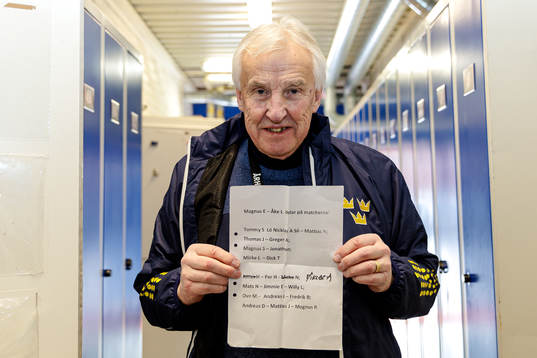 Magnus E – Åke L delar på matcherna!
Tommy S Lö Nicklas A Sö – Mattias N;
Thomas J – Greger A;
Magnus S – Jonathan
Micke L – Dick T
H – Per H – N;
Mats H – Jimmie E – Willy L;
Ove M – Andreas J – Fredrik B;
Andreas D – Mattias J – Magnus R